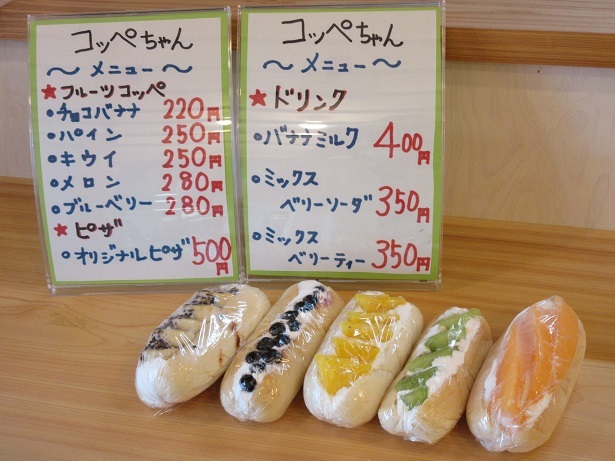 コッペちゃん
〜メニュー〜
★フルーツコッペ
・チョコバナナ 220円
・パイン 250円
・キウイ 250円
・メロン 280円
・ブルーベリー 280円
★ピザ
・オリジナルピザ 500円
コッペちゃん
〜メニュー〜
★ドリンク
・バナナミルク 400円
・ミックス
ベリーソーダ 350円
・ミックス
ベリーティー 350円